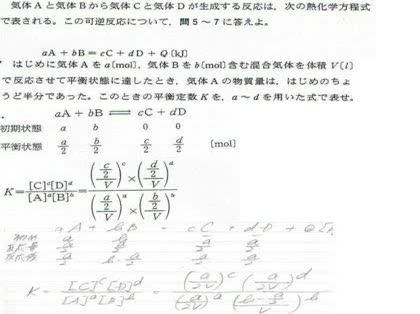 気体Aと気体Bから気体Cと気体Dが生成する反応は、次の熱化学方程式
で表される。この可逆反応について、問5~7に答えよ。
aA + bB = cC + dD + Q [kJ]
はじめに気体Aをa[mol]、気体Bをb[mol]含む混合気体を体積V[l]
で反応させて平衡状態に達したとき、気体Aの物質量は、はじめのちょ
うど半分であった。このときの平衡定数Kを、a~dを用いた式で表せ。
aA + bB ⇌ cC + dD
初期状態 a b 0 0
平衡状態 a/2 b/2 c/2 d/2 [mol]
K = [C]^c[D]^d / [A]^a[B]^b = ((c/2)/V)^c × ((d/2)/V)^d / ((a/2)/V)^a × ((b/2)/V)^b
aA + bB = cC + dD + Q[k
反応量 a/2 a/2 a/2
反応後 a/2 b-a/2 a/2 a/2
K = [C]^c[D]^d / [A]^a[B]^b = (a/2/V)^c (a/2/V)^d / (a/2/V)^a (b-a/2/V)^b